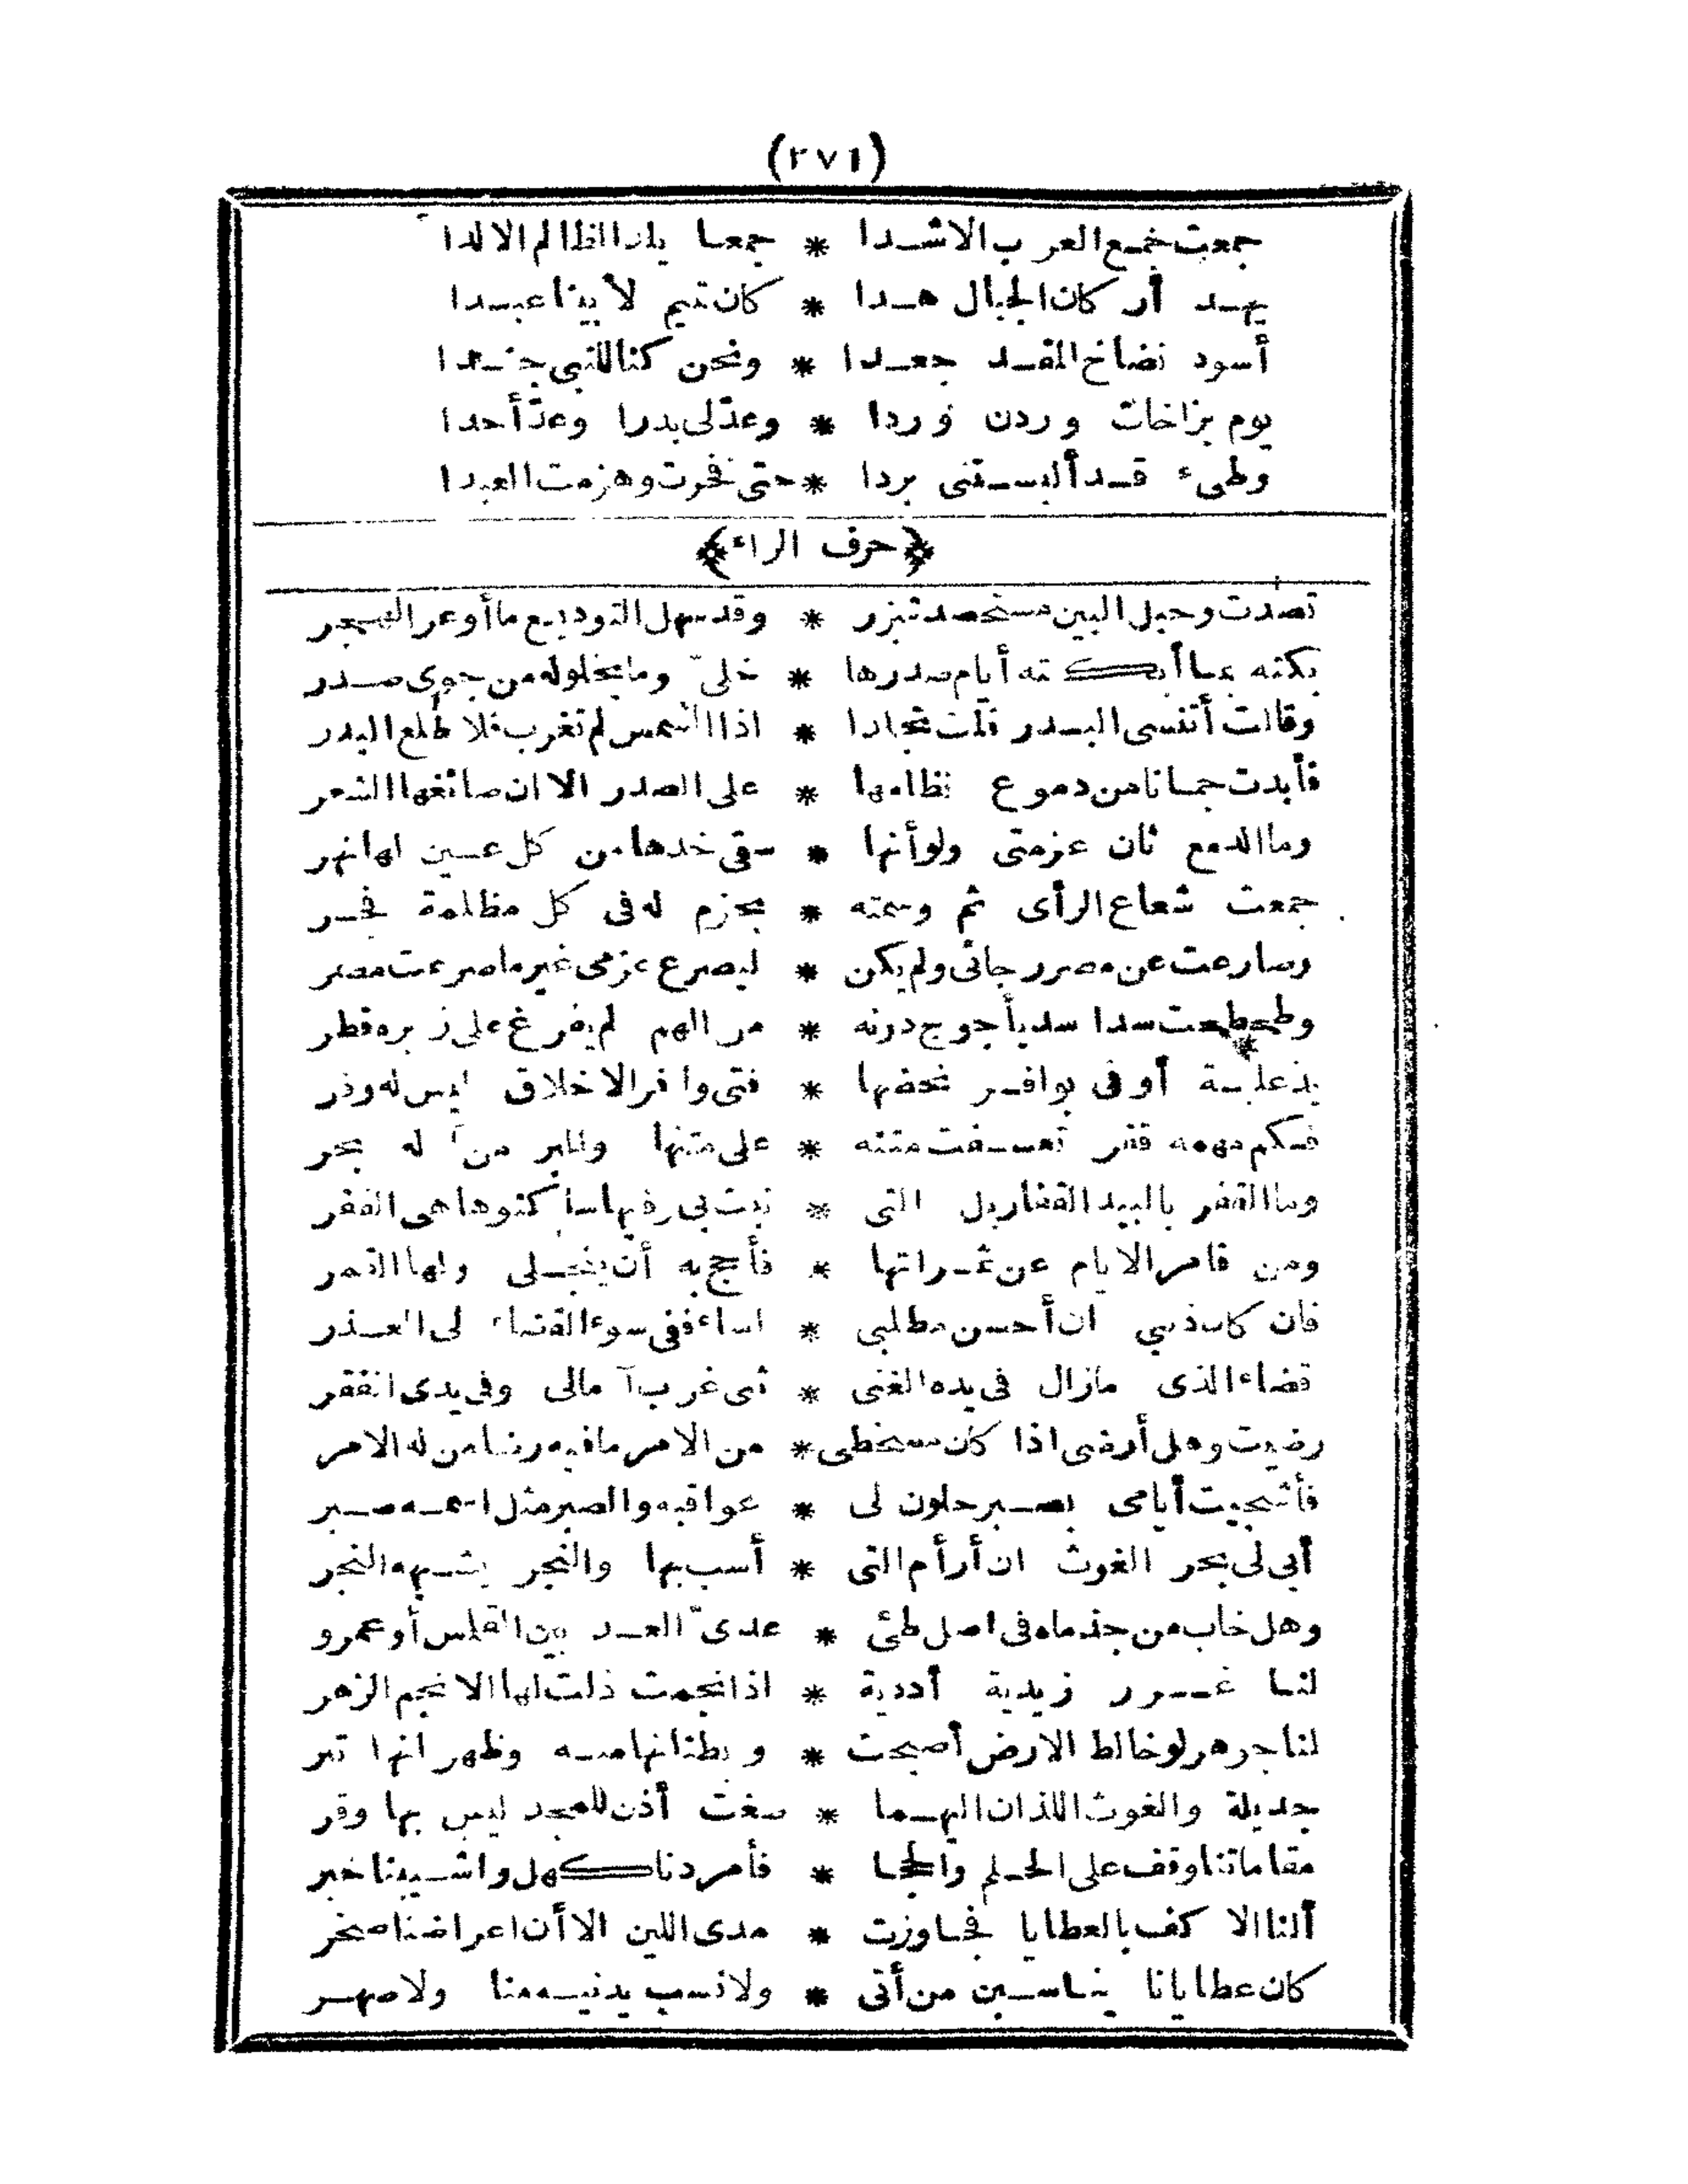 (٢٧١)
جمعت نجمع العرب الاشدا * جمعا يلد الظالم الالدا
يهد أركان الجبال هدا * كان تميم لأبينا عبدا
أسود نضاخ المقد جعدا * ونحن كنا للنبي جندا
يوم بزاخات وردن وردا * وعدّ لى بدرا وعدّ أحدا
وطيء قد ألبستنى بردا * حتى فخرت وهزمت العبدا
﴿حرف الراء﴾
تصدت وحبل البين مستحصد شزر * وقد سهل التوديع ما أوعر الهجر
بكته بما أبكته أيام صدرها * خلىّ وما يخلو له من جوى صدر
وقالت أتنسى البدر قلت تجلدا * اذا الشمس لم تغرب فلا طلع البدر
فأبدت جمانا من دموع نظامها * على الصدر الا ان صائغها الشعر
وما الدمع ثان عزمتى ولو أنها * سقى خدها من كل عين لها نهر
جمعت شعاع الرأى ثم وسمته * بحزم له فى كل مظلمة فجر
وصارعت عن مصر رجائى ولم يكن * ليصرع عزمى غير ما صرعت مصر
وطحطحت سدا سد يأجوج دونه * من الهم لم يفرغ على زبره قطر
بذعلبة أوفى بوافر نحضها * فتى وافر الاخلاق ليس له وفر
فكم مهمه قفر تعسفت متنه * على متنها والبر من آله بحر
وما القفر بالبيد القفار بل التى * نبت بى وفيها ساكنوها هى القفر
ومن قامر الايام عن ثمراتها * فأحج به أن ينجلى ولها القمر
فان كان ذنبي ان أحسن مطلبي * اساء ففى سوء القضاء لى العذر
قضاء الذى مازال فى يده الغنى * ثنى غرب آمالى وفى يدى الفقر
رضيت وهل أرضى اذا كان مسخطى * من الامر ما فيه رضا من له الامر
فأشجيت أيامى بصبر حلون لى * عواقبه والصبر مثل اسمه صبر
أبى لى بحر الغوث ان أرأم التى * أسب بها والنجر يشبهه النجر
وهل خاب من جذماه فى اصل طئ * عدىّ العد بين القلمس أو عمرو
لنا غرر زيدية أددية * اذا نجمت ذلت لها الانجم الزهر
لنا جوهر لو خالط الارض أصبحت * وبطنانها منه وظهرانها تبر
جديلة والغوث اللذان اليهما * صغت أذن للمجد ليس بها وقر
مقاماتنا وقف على الحلم والحجا * فأمردنا كهل واشيبنا حبر
ألنا الاكف بالعطايا فجاوزت * مدى اللين الا أن اعراضنا صخر
كان عطايانا يناسبن من أتى * ولا نسب يدنيه منا ولا صهر